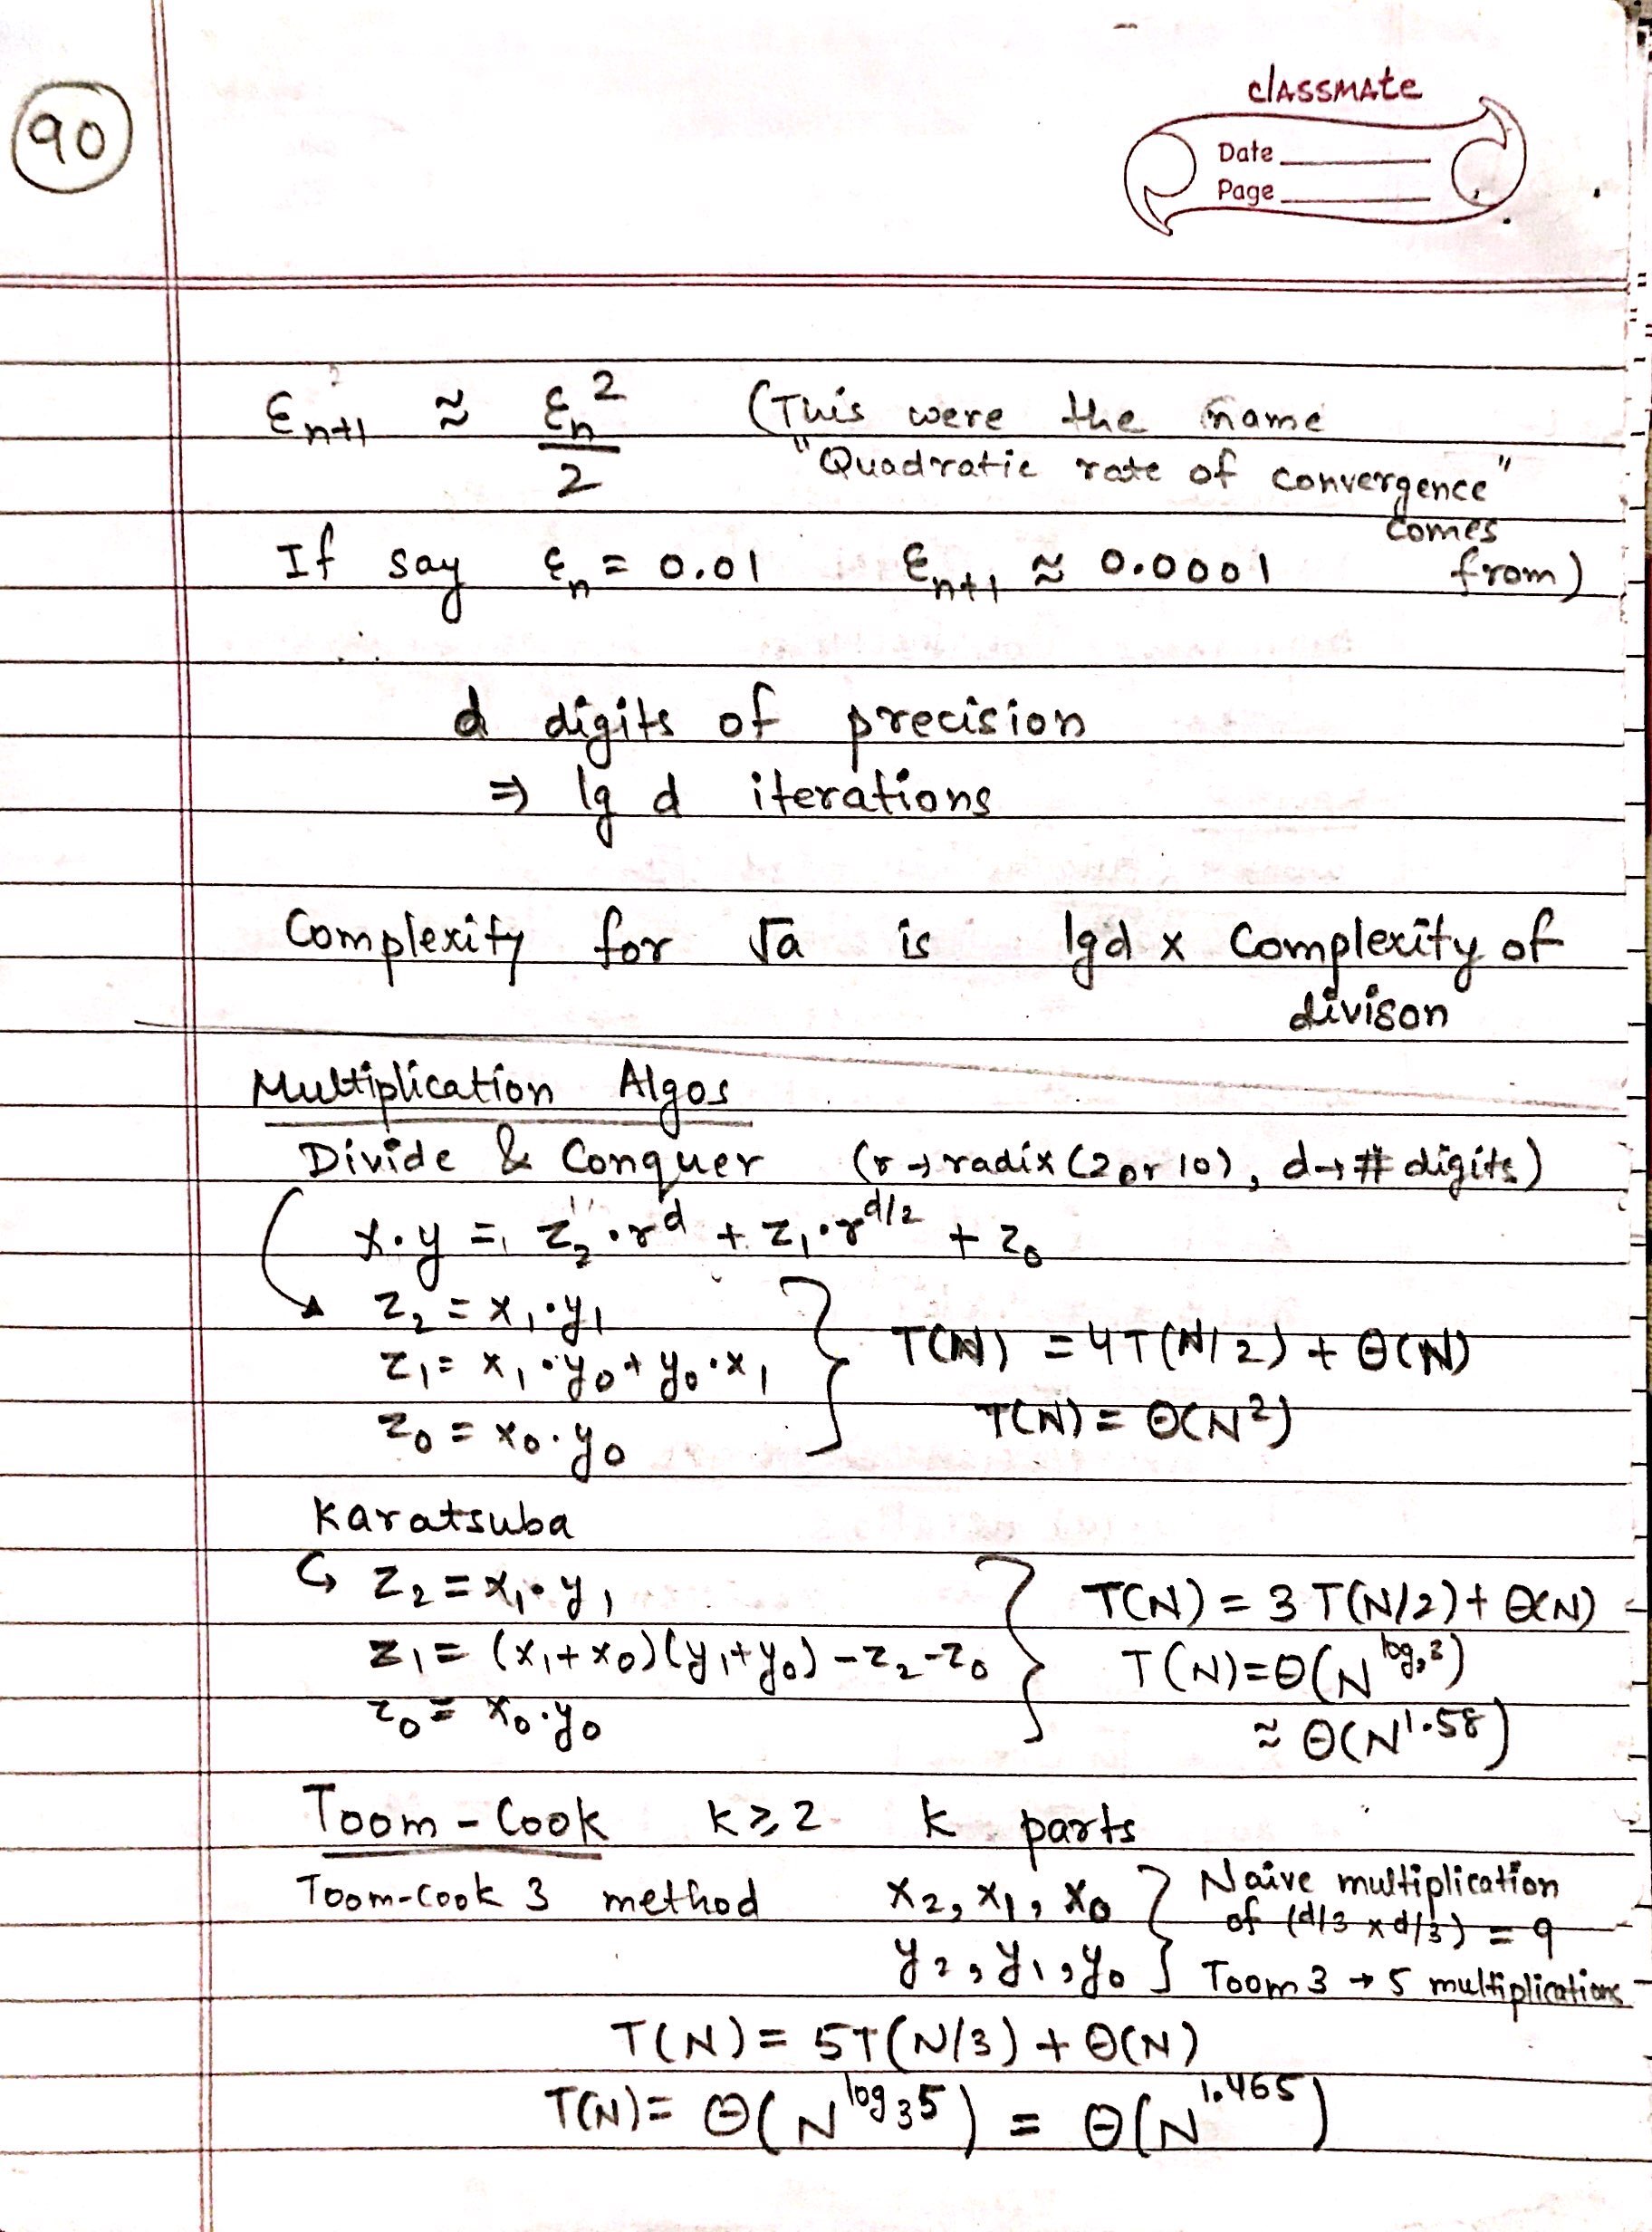 90
classmate
Date
Page
Ɛn+1 ≈ Ɛn²/2 (This were the name
"Quadratic rate of convergence"
comes
If say Ɛn = 0.01 Ɛn+1 ≈ 0.0001 from)
d digits of precision
⇒ lg d iterations
Complexity for √a is lgd x Complexity of
divison
Multiplication Algos
Divide & Conquer (r → radix (2 or 10), d → # digits)
x.y = z₂.r^d + z₁.r^(d/2) + z₀
z₂ = x₁.y₁
z₁ = x₁.y₀ + y₀.x₁ T(N) = 4T(N/2) + Θ(N)
z₀ = x₀.y₀ T(N) = Θ(N²)
Karatsuba
z₂ = x₁.y₁ T(N) = 3T(N/2) + Θ(N)
z₁ = (x₁+x₀)(y₁+y₀) - z₂ - z₀ T(N) = Θ(N^log₂3)
z₀ = x₀.y₀ ≈ Θ(N^1.58)
Toom-Cook k ≥ 2 k parts
Toom-Cook 3 method x₂, x₁, x₀ Naive multiplication
of (d/3 x d/3) = 9
y₂, y₁, y₀ Toom 3 → 5 multiplications
T(N) = 5T(N/3) + Θ(N)
T(N) = Θ(N^log₃5) = Θ(N^1.465)